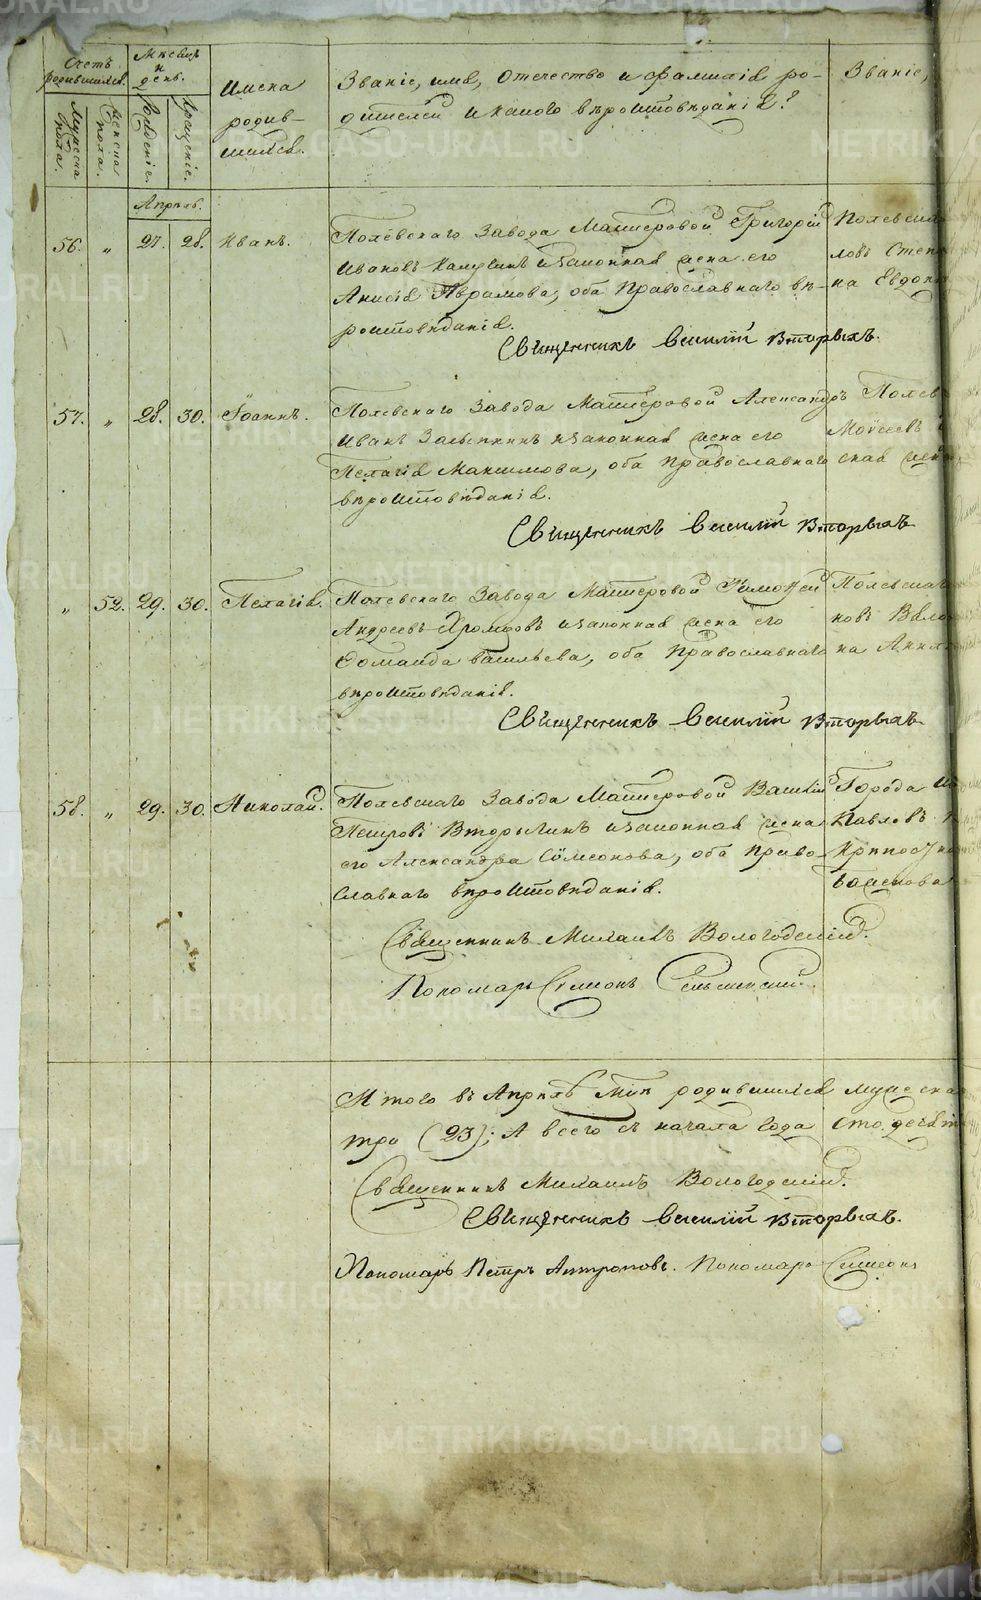 Счетъ родившихся.
Мужеска пола.
Женска пола.
Мѣсяцъ и день.
Рожденіе.
Крещеніе.
Имена родив-
шихся.
Званіе, имя, отечество и фамилія ро-
дителей и какого вѣроисповѣданія?
Званіе,
Апрѣль.
56. „ 27. 28. Иванъ.
Полевскаго Завода Мастеровой Григорій
Ивановъ и законная жена его
Анисія Аврамова, оба Православнаго вѣ-
роисповѣданія.
Священникъ Василій Вторыхъ.
ловъ Степ
на Евдок
57. „ 28. 30. Іоаннъ.
Полевскаго Завода Мастеровой Александръ
Иванъ и законная жена его
Пелагія Максимова, оба Православнаго
вѣроисповѣданія.
Священникъ Василій Вторыхъ
Полев
Моѵсеевъ
ская жен
„ 52. 29. 30. Пелагія.
Полевскаго Завода Мастеровой Тимоѳей
Андреевъ и законная жена его
Соломанда Васильева, оба Православнаго
вѣроисповѣданія.
Священникъ Василій Вторыхъ
Полевскаг
на Анна
58. „ 29. 30. Николай.
Полевскаго Завода Мастеровой Василій
Петровъ и законная жена
его Александра Сѵмеонова, оба Право-
славнаго вѣроисповѣданія.
Священникъ Михаилъ Вологодскій.
Пономарь Симіонъ
Города
Павловъ
Итого въ Апрѣлѣ мѣсяцѣ родившихся мужеска
три (23); А всего съ начала года сто девят
Священникъ Михаилъ Вологодскій.
Священникъ Василій Вторыхъ.
Пономарь Петръ Антроповъ. Пономарь Симеонъ
METRIKI.GASO-URAL.RU